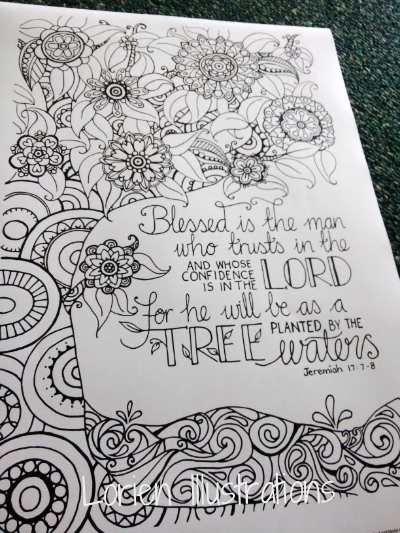 Blessed is the man
who trusts in the
AND WHOSE
CONFIDENCE
IS IN THE
LORD
for he will be as a
TREE
PLANTED BY THE
waters
Jeremiah 17:7-8
Lorien Illustrations